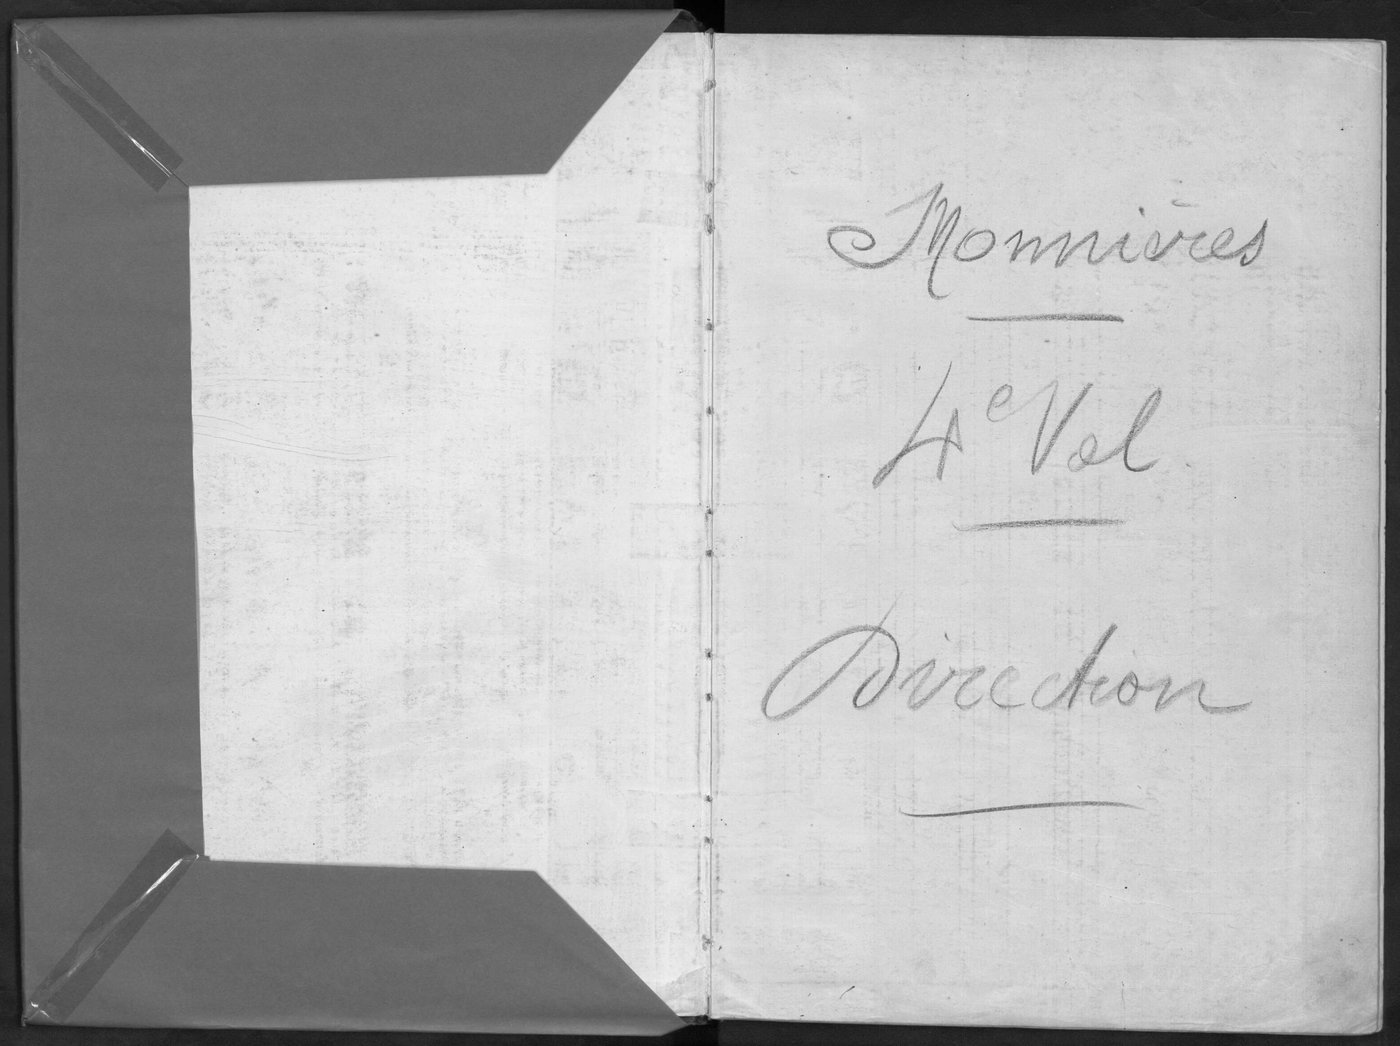 Monnières
4e Vol
Direction